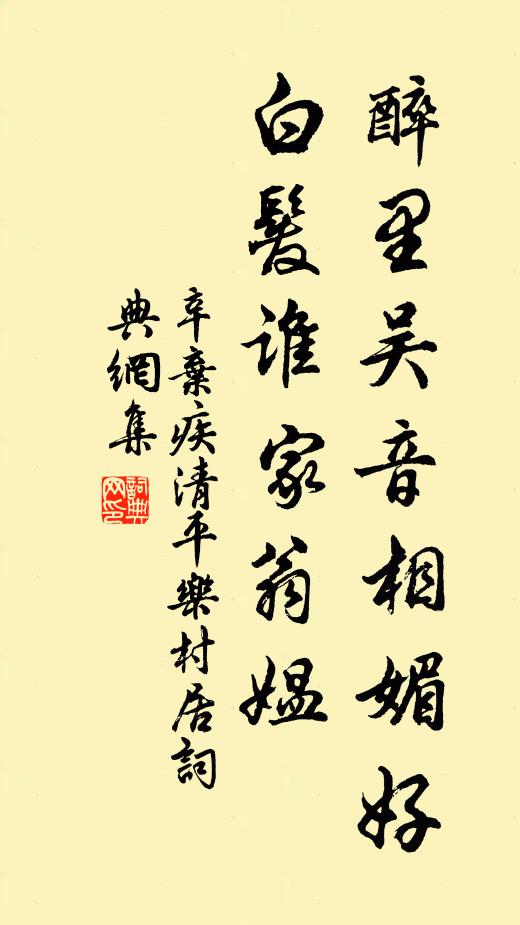 醉里吴音相媚好
白髮誰家翁媼
辛棄疾清平樂村居詞
典網集
詞典
网印